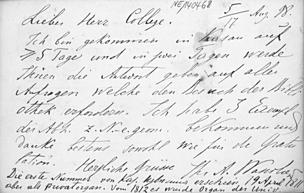 5/17 Aug. 98.
Lieber Herr College.
Ich bin gekommen in Kasan auf
5 Tage und in zwei Tagen werde
Ihnen die Antwort geben auf alle
Aufragen welche den Besuch der Bibli
othek erfordern. Ich habe 3 Exempl
der Abh. z. N.-e. geom. bekommen und
Danke bestens sowohl wie für die Gratu
lation. Herzliche Grüsse
Die erste Nummer von
aber als Privatorgan. Von 1812 es wurde Organ der Univ.